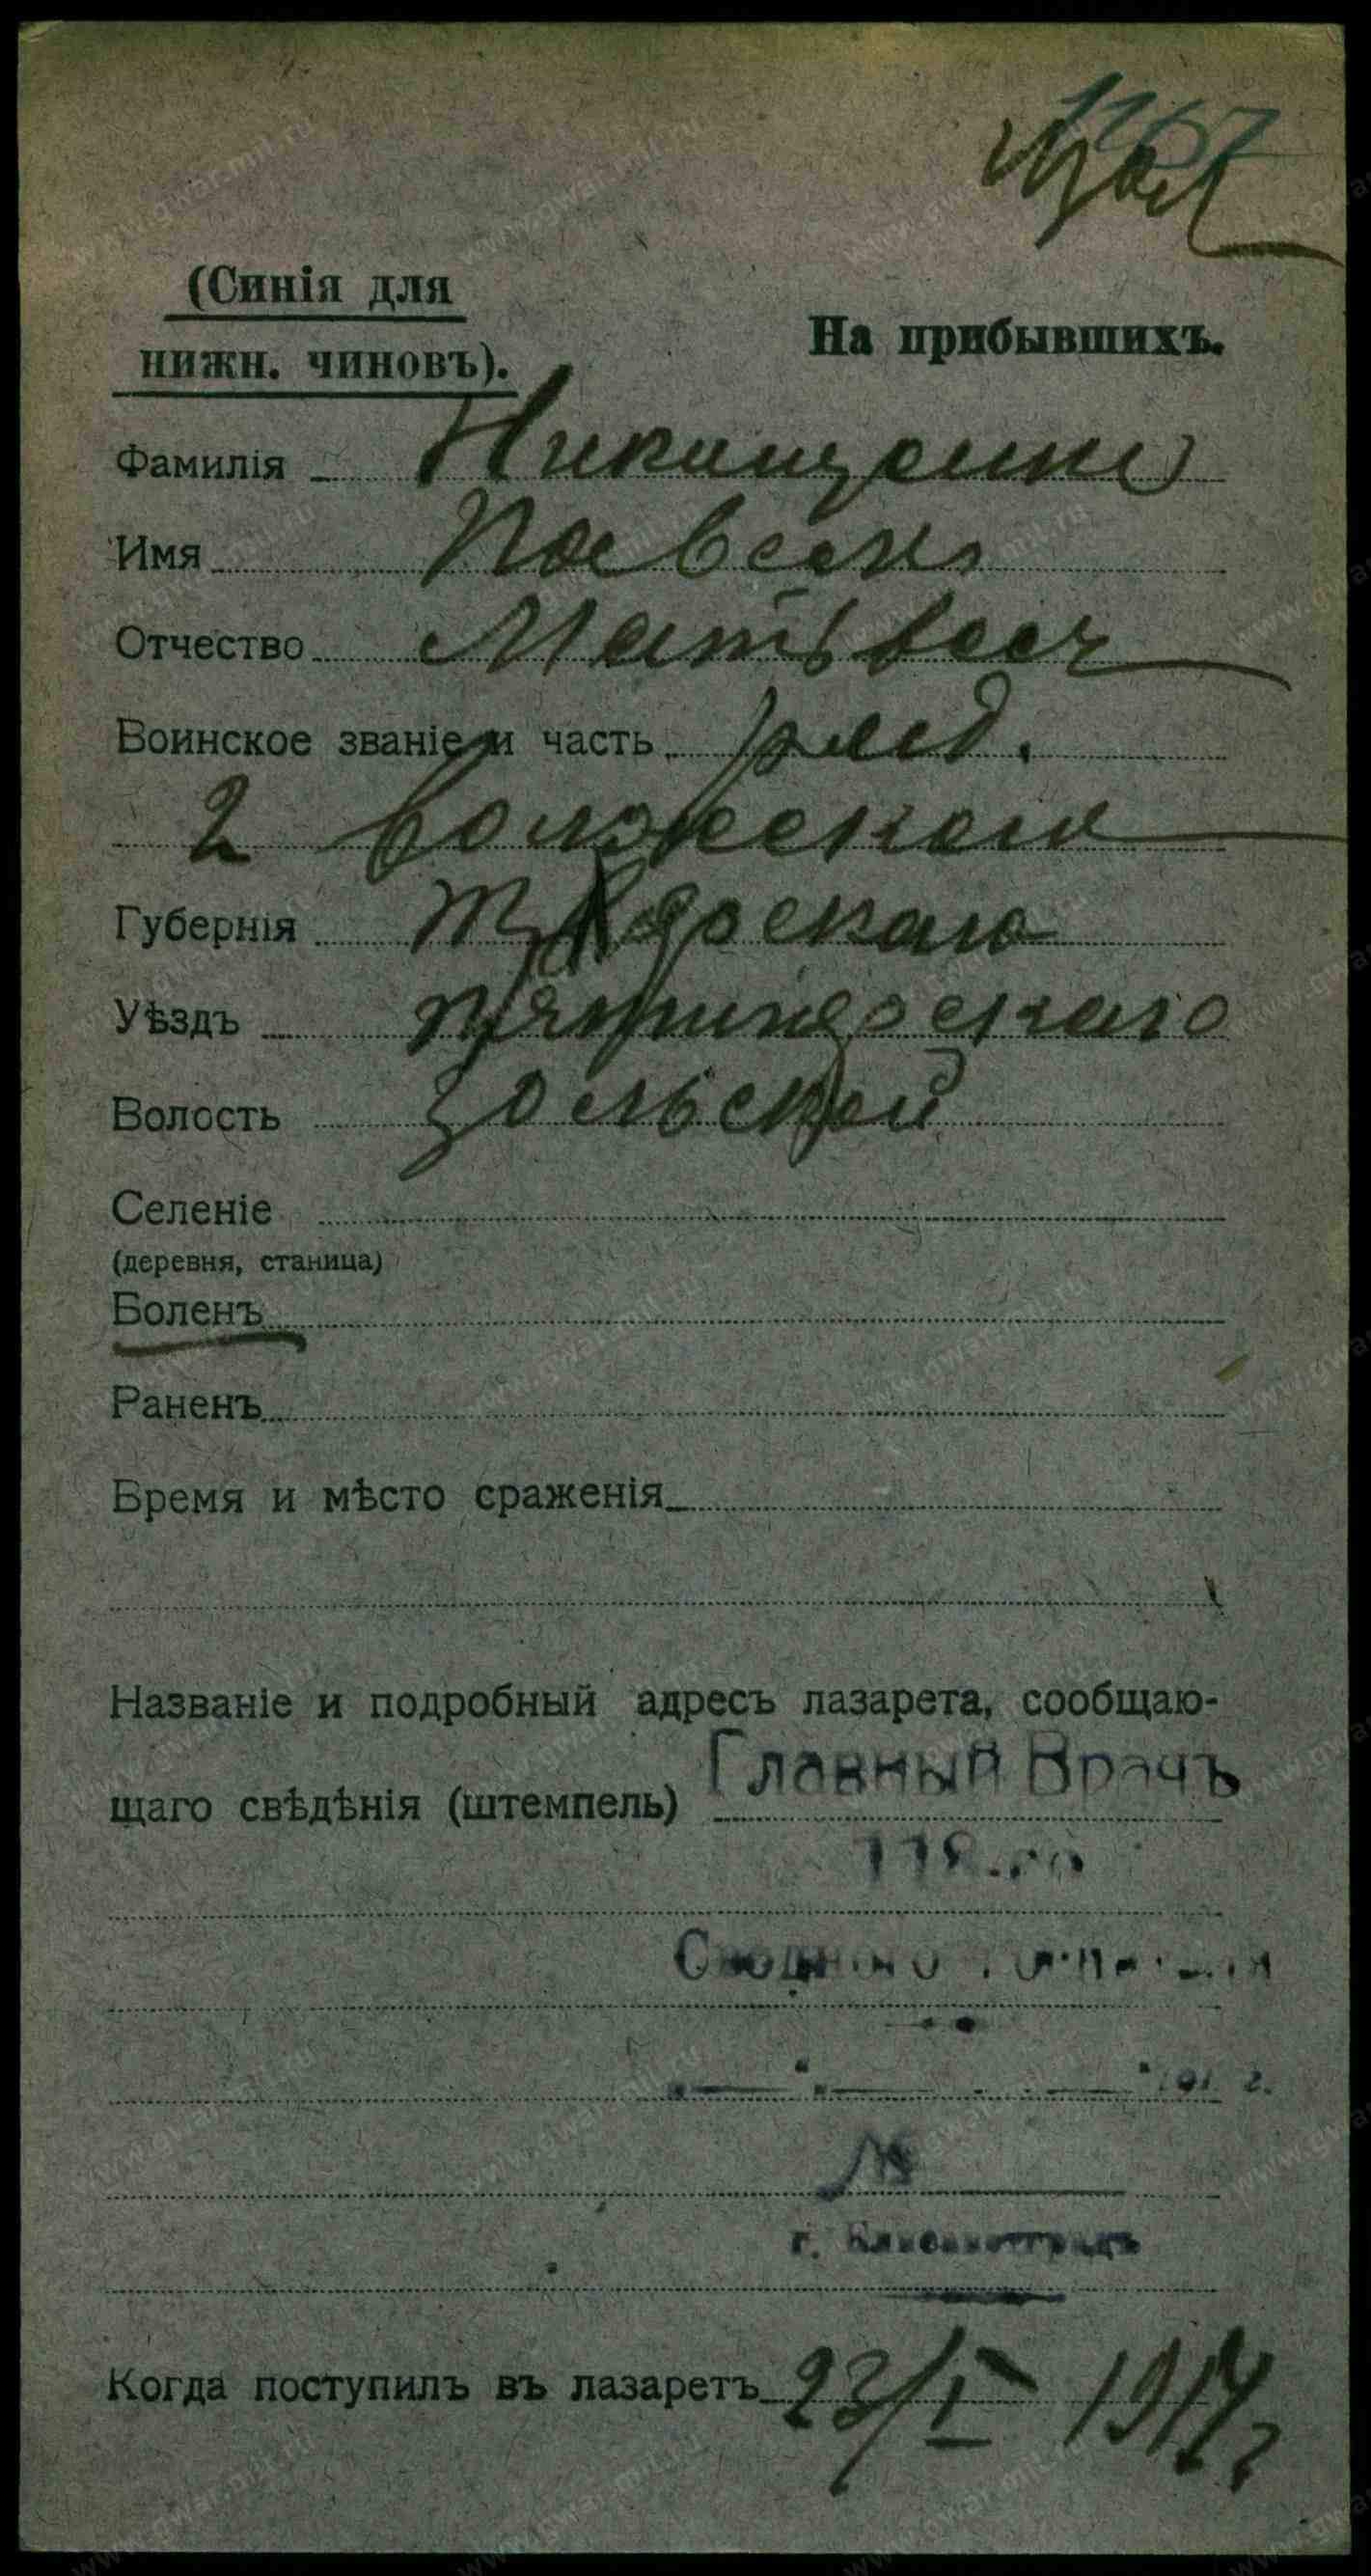 1267
(Синія для
нижн. чиновъ).
На прибывшихъ.
Фамилія Никищенко
Имя Павелъ
Отчество Матвѣев
Воинское званіе и часть ряд.
2 Волжскаго
Губернія
Уѣздъ
Волость Зольской
Селеніе
(деревня, станица)
Боленъ
Раненъ
Время и мѣсто сраженія
Названіе и подробный адресъ лазарета, сообщаю-
щаго свѣдѣнія (штемпель) Главный Врачъ
Сводного Госпиталя
191 г.
№
г. Елисаветградъ
Когда поступилъ въ лазаретъ 23/I 1917 г